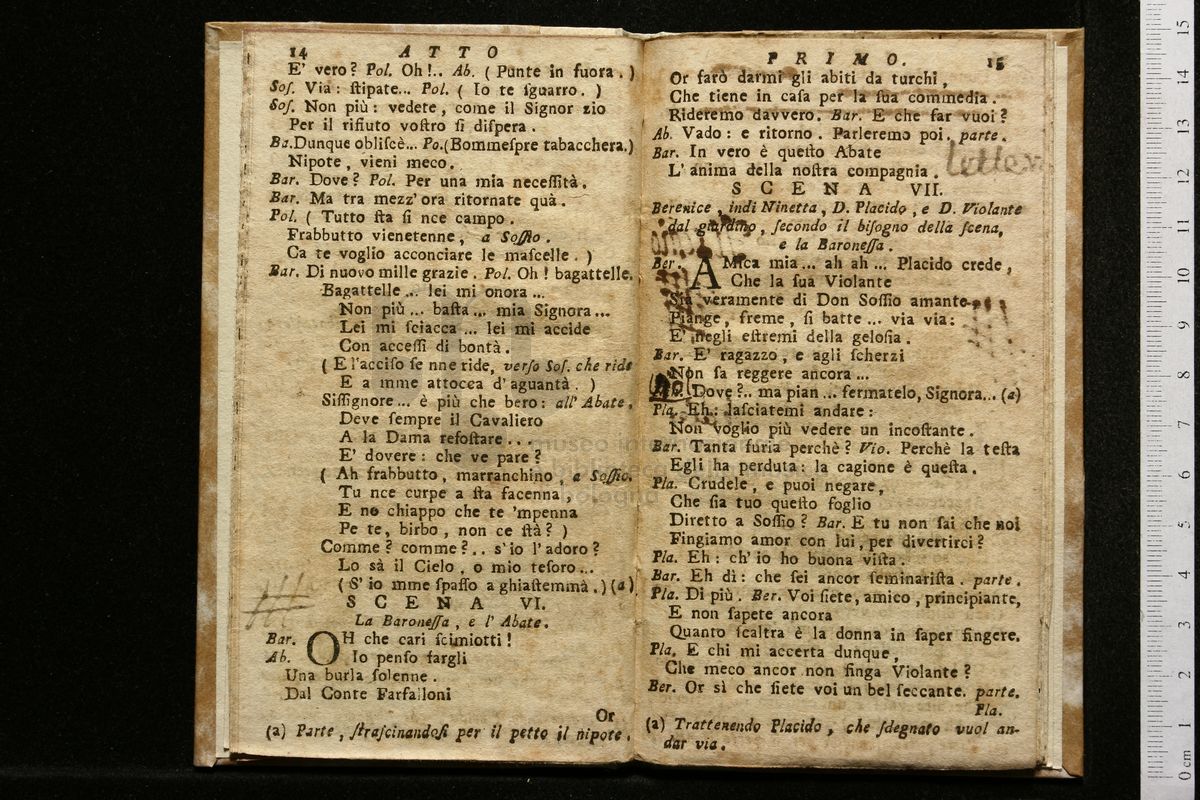 14 ATTO
E' vero? Pol. Oh!.. Ab. ( Punte in fuora. )
Soſ. Via: ſtipate... Pol. ( Io te ſguarro. )
Soſ. Non più: vedete, come il Signor zio
Per il rifiuto voſtro ſi diſpera.
Ba. Dunque obliſcè... Po. (Bommeſpre tabacchera.)
Nipote, vieni meco.
Bar. Dove? Pol. Per una mia neceſſità.
Bar. Ma tra mezz' ora ritornate quà.
Pol. ( Tutto ſta ſi nce campo.
Frabbutto vienetenne, a Soſſio.
Ca te voglio acconciare le maſcelle. )
Bar. Di nuovo mille grazie. Pol. Oh! bagattelle.
Bagattelle... lei mi onora...
Non più... baſta... mia Signora...
Lei mi ſciacca... lei mi accide
Con acceſſi di bontà.
( E l'acciſo ſe nne ride, verſo Soſ. che ride
E a mme attocca d'aguantà. )
Siſſignore... è più che bero: all' Abate,
Deve ſempre il Cavaliero
A la Dama refoſtare...
E' dovere: che ve pare?
( Ah frabbutto, marranchino, a Soſſio.
Tu nce curpe a ſta facenna,
E no chiappo che te 'mpenna
Pe te, birbo, non ce ſtà? )
Comme? comme?.. s'io l'adoro?
Lo sà il Cielo, o mio teſoro...
( S' io mme ſpaſſo a ghiaſtemmà. ) (a)
SCENA VI.
La Baroneſſa, e l' Abate.
Bar. OH che cari ſcimiotti!
Ab. Io penſo fargli
Una burla ſolenne.
Dal Conte Farfalloni
Or
(a) Parte, ſtraſcinandoſi per il petto il nipote.
PRIMO. 15
Or farò darmi gli abiti da turchi,
Che tiene in caſa per la ſua commedia.
Rideremo davvero. Bar. E che far vuoi?
Ab. Vado: e ritorno. Parleremo poi. parte.
Bar. In vero è queſto Abate
L' anima della noſtra compagnia.
SCENA VII.
Berenice, indi Ninetta, D. Placido, e D. Violante
dal giardino, ſecondo il biſogno della ſcena,
e la Baroneſſa.
Ber. AMica mia... ah ah... Placido crede,
Che la ſua Violante
Sia veramente di Don Soſſio amante.
Piange, freme, ſi batte... via via:
E' negli eſtremi della geloſia.
Bar. E' ragazzo, e agli ſcherzi
Non ſa reggere ancora...
Dove?.. ma pian... fermatelo, Signora... (a)
Pla. Eh: laſciatemi andare:
Non voglio più vedere un incoſtante.
Bar. Tanta furia perchè? Vio. Perchè la teſta
Egli ha perduta: la cagione è queſta.
Pla. Crudele, e puoi negare,
Che ſia tuo queſto foglio
Diretto a Soſſio? Bar. E tu non ſai che noi
Fingiamo amor con lui, per divertirci?
Pla. Eh: ch' io ho buona viſta.
Bar. Eh dì: che ſei ancor ſeminariſta. parte.
Pla. Di più. Ber. Voi ſiete, amico, principiante,
E non ſapete ancora
Quanto ſcaltra è la donna in ſaper fingere.
Pla. E chi mi accerta dunque,
Che meco ancor non finga Violante?
Ber. Or sì che ſiete voi un bel ſeccante. parte.
Pla.
(a) Trattenendo Placido, che ſdegnato vuol an-
dar via.
0 cm 1 2 3 4 5 6 7 8 9 10 11 12 13 14 15